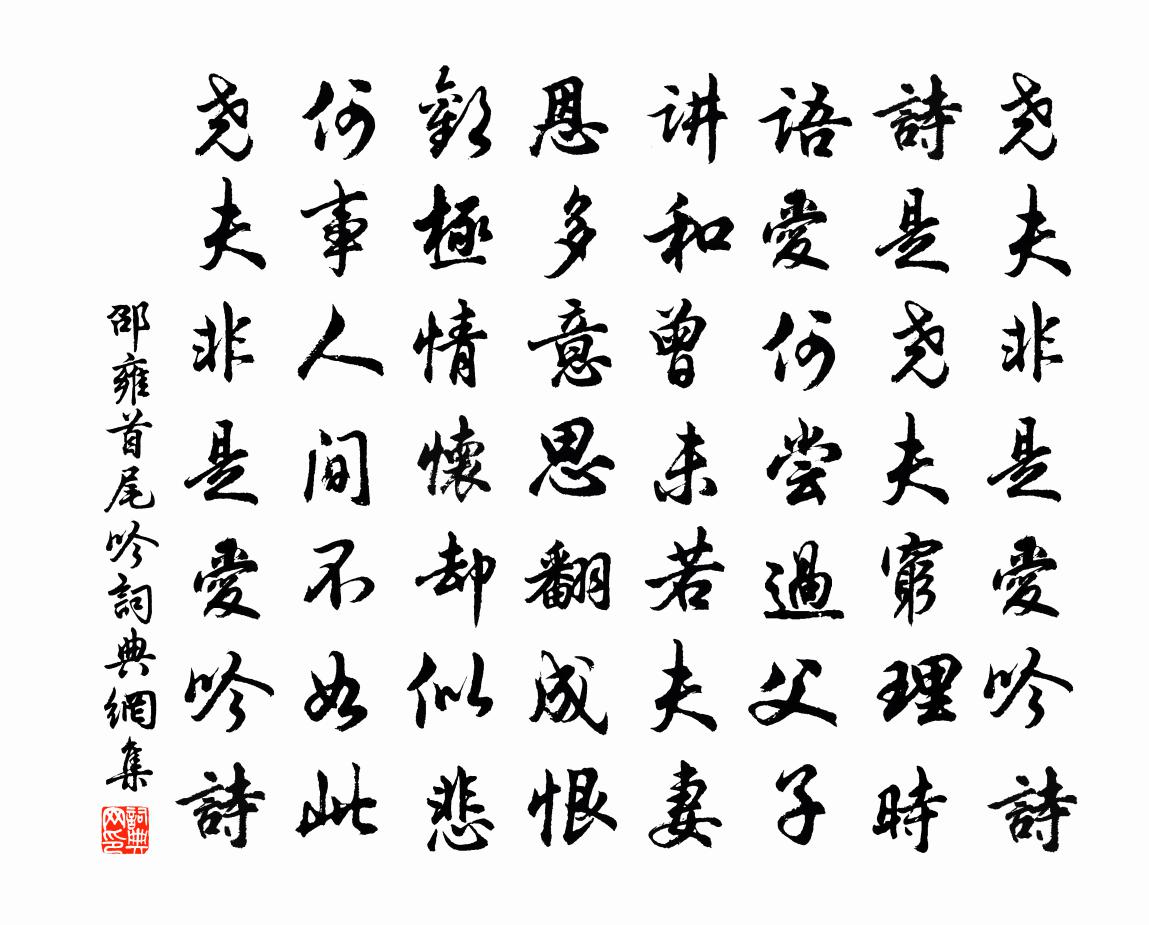 尧夫非是爱吟詩
詩是尧夫窮理時
语愛何尝過父子
讲和曾未若夫妻
恩多意思翻成恨
歡極情懷却似悲
何事人间不如此
尧夫非是愛吟詩
邵雍首尾吟詞典網集
詞典网印